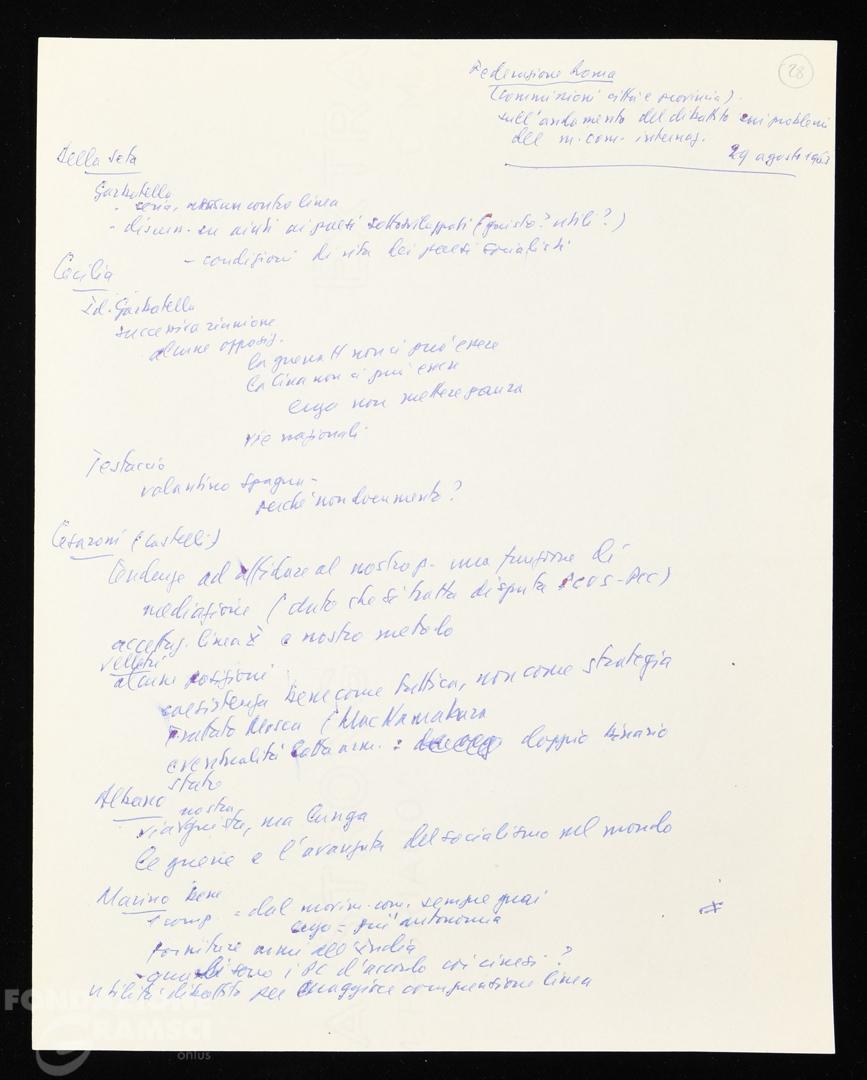 28
Federazione Roma
(Commissioni città e provincia).
sull'andamento del dibattito sui problemi
del m. com. internaz.
29 agosto 1963
Della Seta
Garbatella
- seria, nessun contro linea
- discus. su aiuti ai paesi sottosviluppati (giusto? utili?)
- condizioni di vita dei paesi socialisti
Cecilia
Id. Garbatella
successiva riunione
alcune opposiz.
la guerra H non ci può essere
la Cina non ci può essere
ergo non mettere paura
vie nazionali
Testaccio
valentino spagn-
perché non documento?
Cesaroni (Castelli)
tendenze ad affidare al nostro p. una funzione di
mediazione (dato che si tratta disputa PCUS-PCC)
accettaz. linea e nostro metodo
Velletri
alcune posizioni
coesistenza bene come tattica, non come strategia
trattato Mosca (MacNamara
eventualità lotta arm. : doppio binario
stato
Albano nostra
via giusta, ma lunga
le guerre e l'avanzata del socialismo nel mondo
Marino bene
1 comp. = dal movim. com. sempre guai
ergo = più autonomia
forniture armi all'India
- quali sono i PC d'accordo coi cinesi?
utilità dibattito per maggiore comprensione linea
FONDAZIONE
GRAMSCI
onlus